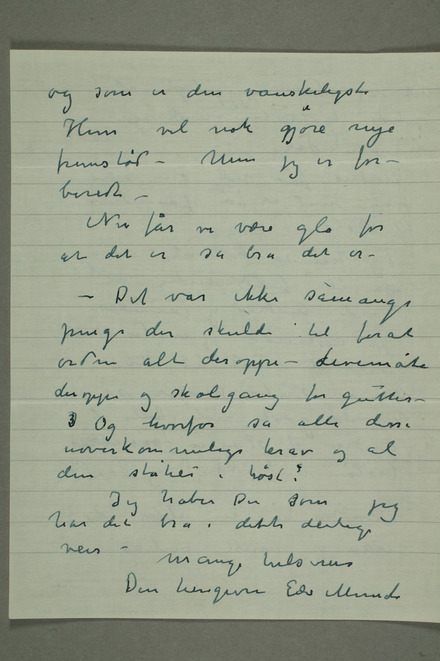 og som er den vanskeligste
Hun vil nok gjöre nye
fremstöd – Men jeg er for-
beredt –
Nu får vi være gla for
at det er så bra det er –
– Det var ikke såmange
penge der skulde til forat
ordne alt deroppe – Levemåte
deroppe og skolegang for gutter –
Og hvorfor så alle disse
uoverkommelige krav og al
den ståhei i höst?
Jeg håber Du som jeg
har det bra i dette deilige
veir –
Mange hilsener
Din hengivne Edv Munch